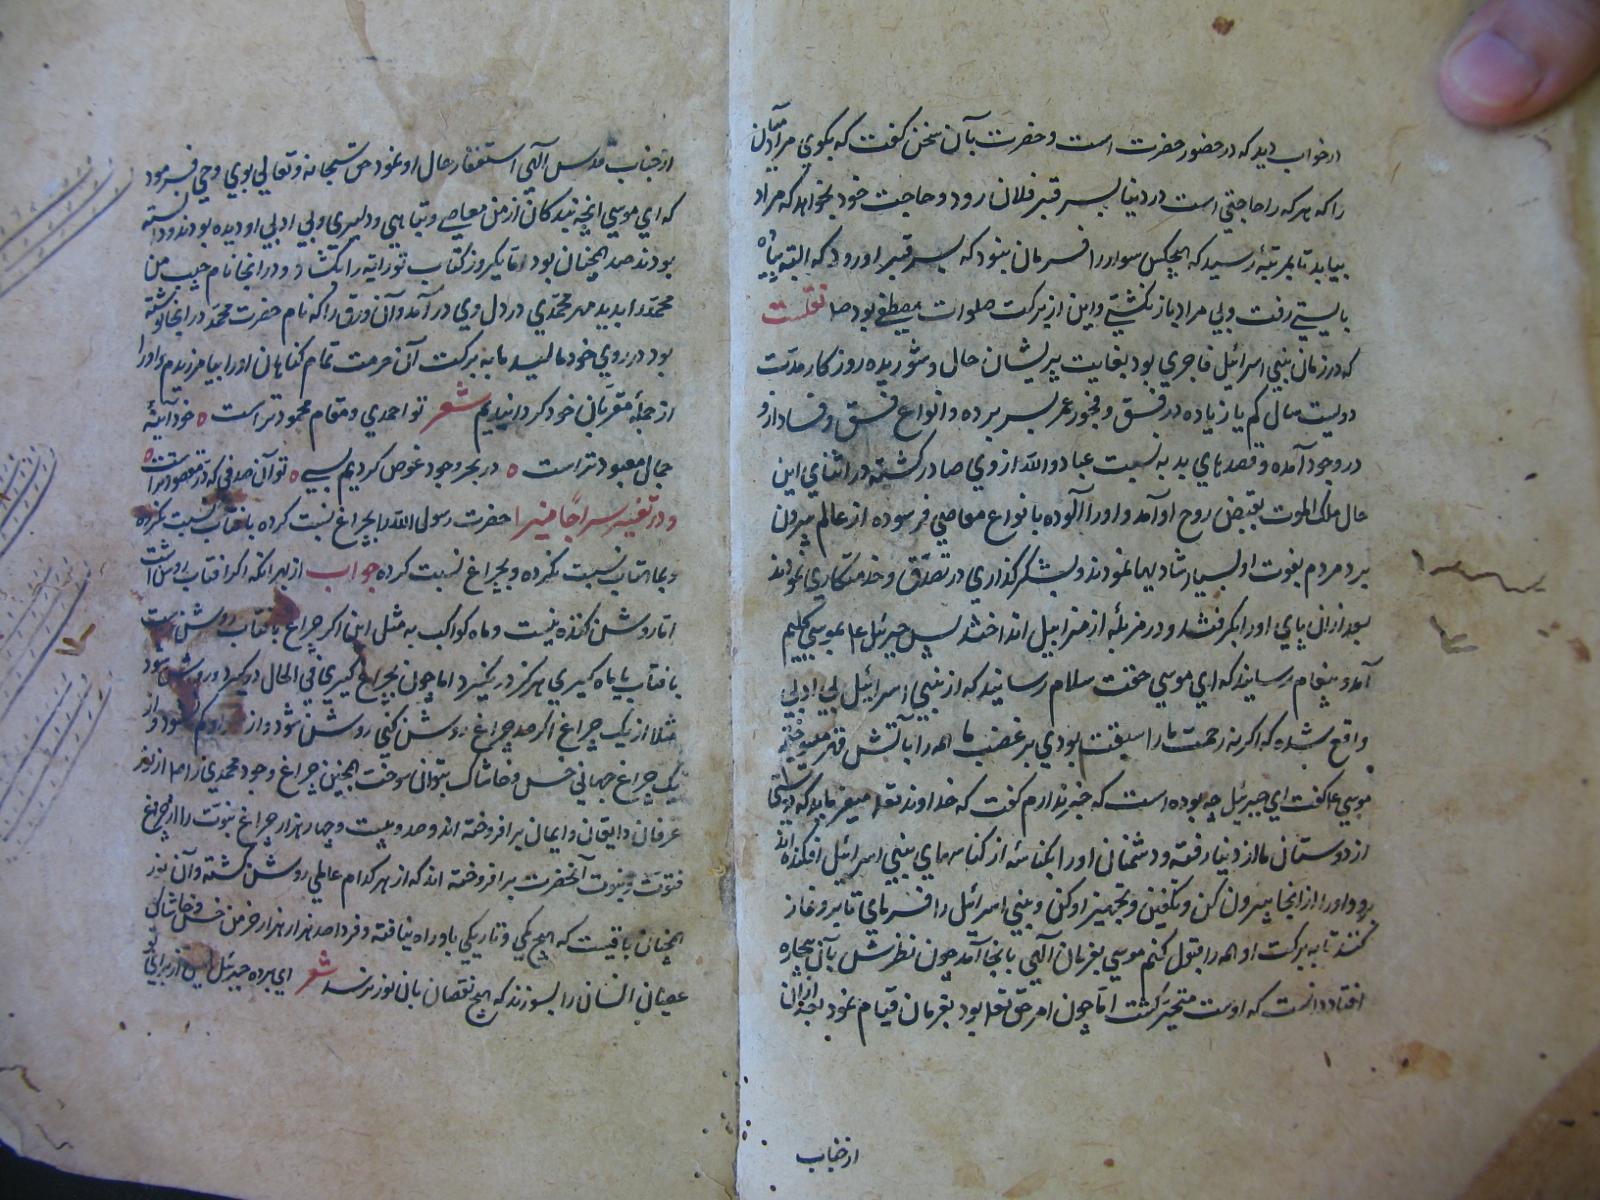 درخواب دید که در حضور حضرت است و حضرت بآن سخن گفت که بگوی مر
را که هر که را حاجتی است در دنیا بسر قبر فلان رود و حاجت خود بخواهد که مراد
بیابد تا بمرتبۀ رسید که هیچکس سوار را فرمان نبود که بسر قبر او رود که البته پیاده
بایستی رفت و بی مراد باز نگشتی و این از برکت صلوات مصطفی بود صلعم نقلست
که در زمان بنی اسرائیل فاجری بود بغایت پریشان حال و شوریده روزکار مدّت
دویست سال کم یا زیاده در فسق و فجور عمر بسر برده و انواع فسق و فساد ازو
در وجود آمده و قصدهای بد به نسبت عباد الله از وی صادر کشته در اثنای این
حال ملک الموت بقبض روح او آمد و او را آلوده بانواع معاصی فرسوده از عالم بیرون
برد مردم بفوت او بسیار شادیها نمودند و بشکر کذاری در تصدّق و خدمتکاری نمودند
بعد از ان پای او را بکرفتند و در مزبلۀ از مزابیل انداختند پس جبرئیل علم بموسی کلیم
آمد و پیغام رسانید که ای موسی حقت سلام رسانید که از بنی اسرائیل بی ادبی
واقع شده که اکر نه رحمت ما را سبقت بودی بر غضب ما همه را بآتش قهر میسوختیم
موسی علم کفت ای جبرئیل چه بوده است که خبر ندارم کفت که خداوند تعلم میفرماید که دوستی
از دوستان ما از دنیا رفته و دشمنان او را بکناسۀ از کناسهای بنی اسرائیل افکنده اند
برو و او را از انجا بیرون کن و تکفین و تجهیز او کن و بنی اسرائیل را فرمای تا برو نماز
کنند تا به برکت او همه را قبول کنم موسی بفرمان الهی بانجا آمد چون نظرش بآن بیچاره
افتاد دانست که اوست متحیر کشت امّا چون امر حق تعلم بود بفرمان قیام نمود بعد از ان
از جناب
از جناب قدس الهی استغفار حال او نمود حق سبحانه و تعالی بوی وحی فرمود
که ای موسی آنچه بندکان از من معاصی و تباهی و دلیری و بی ادبی او دیده بودند و دانسته
بودند صد همچنان بود امّا یکروز کتاب توراته را بکشاد و در انجا نام حبیب من
محمّد را بدید مهر محمّدی در دل وی در آمد و آن ورق را که نام حضرت محمّد در انجا نوشته
بود در روی خود مالید ما به برکت آن حرمت تمام کناهان او را بیامرزیدم و او را
از جملۀ مقرّبان خود کردانیدیم شعر تو احمدی و مقام محمود تراست ه خود آئینۀ
جمال معبود تراست ه در بحر وجود غوص کردیم بسی ه تو آن صدفی که درّ مقصود تراست ه
و در تفسیر سراجًا منیرا حضرت رسول الله را بچراغ نسبت کرده بآفتاب نسبت نکرده
و بماهتاب نسبت نکرده و بچراغ نسبت کرده جواب از بهر انکه اکر آفتاب روشن است
امّا روشن کننده نیست و ماه کواکب به مثل این اکر چراغ بآفتاب روشن است
بآفتاب یا ماه کیری هرکز در نکیرد امّا چون بچراغ کیری فی الحال در کیرد و روشن شود
مثلا از یک چراغ اکر صد چراغ روشن کنی روشن شود و از او کم نشود و از
یک چراغ جهانی خس و خاشاک بتوانی سوخت همچنین چراغ وجود محمدی را صلعم از نور
عرفان و ایقان و ایمان بر افروخته اند و صد و بیست و چهار هزار چراغ نبوّت را از چراغ
فتوّت و نبوت آنحضرت بر افروخته اند که از هر کدام عالمی روشن کشته و آن نور
همچنان باقیست که هیچ یکی و تاریکی باو راه نیافته و فردا صد هزار هزار خرمن خس و خاشاک
عصیان انسان را بسوزند که هیچ نقصان بان نور نرسد شعر ای برده جبرئیل امین از برای تو